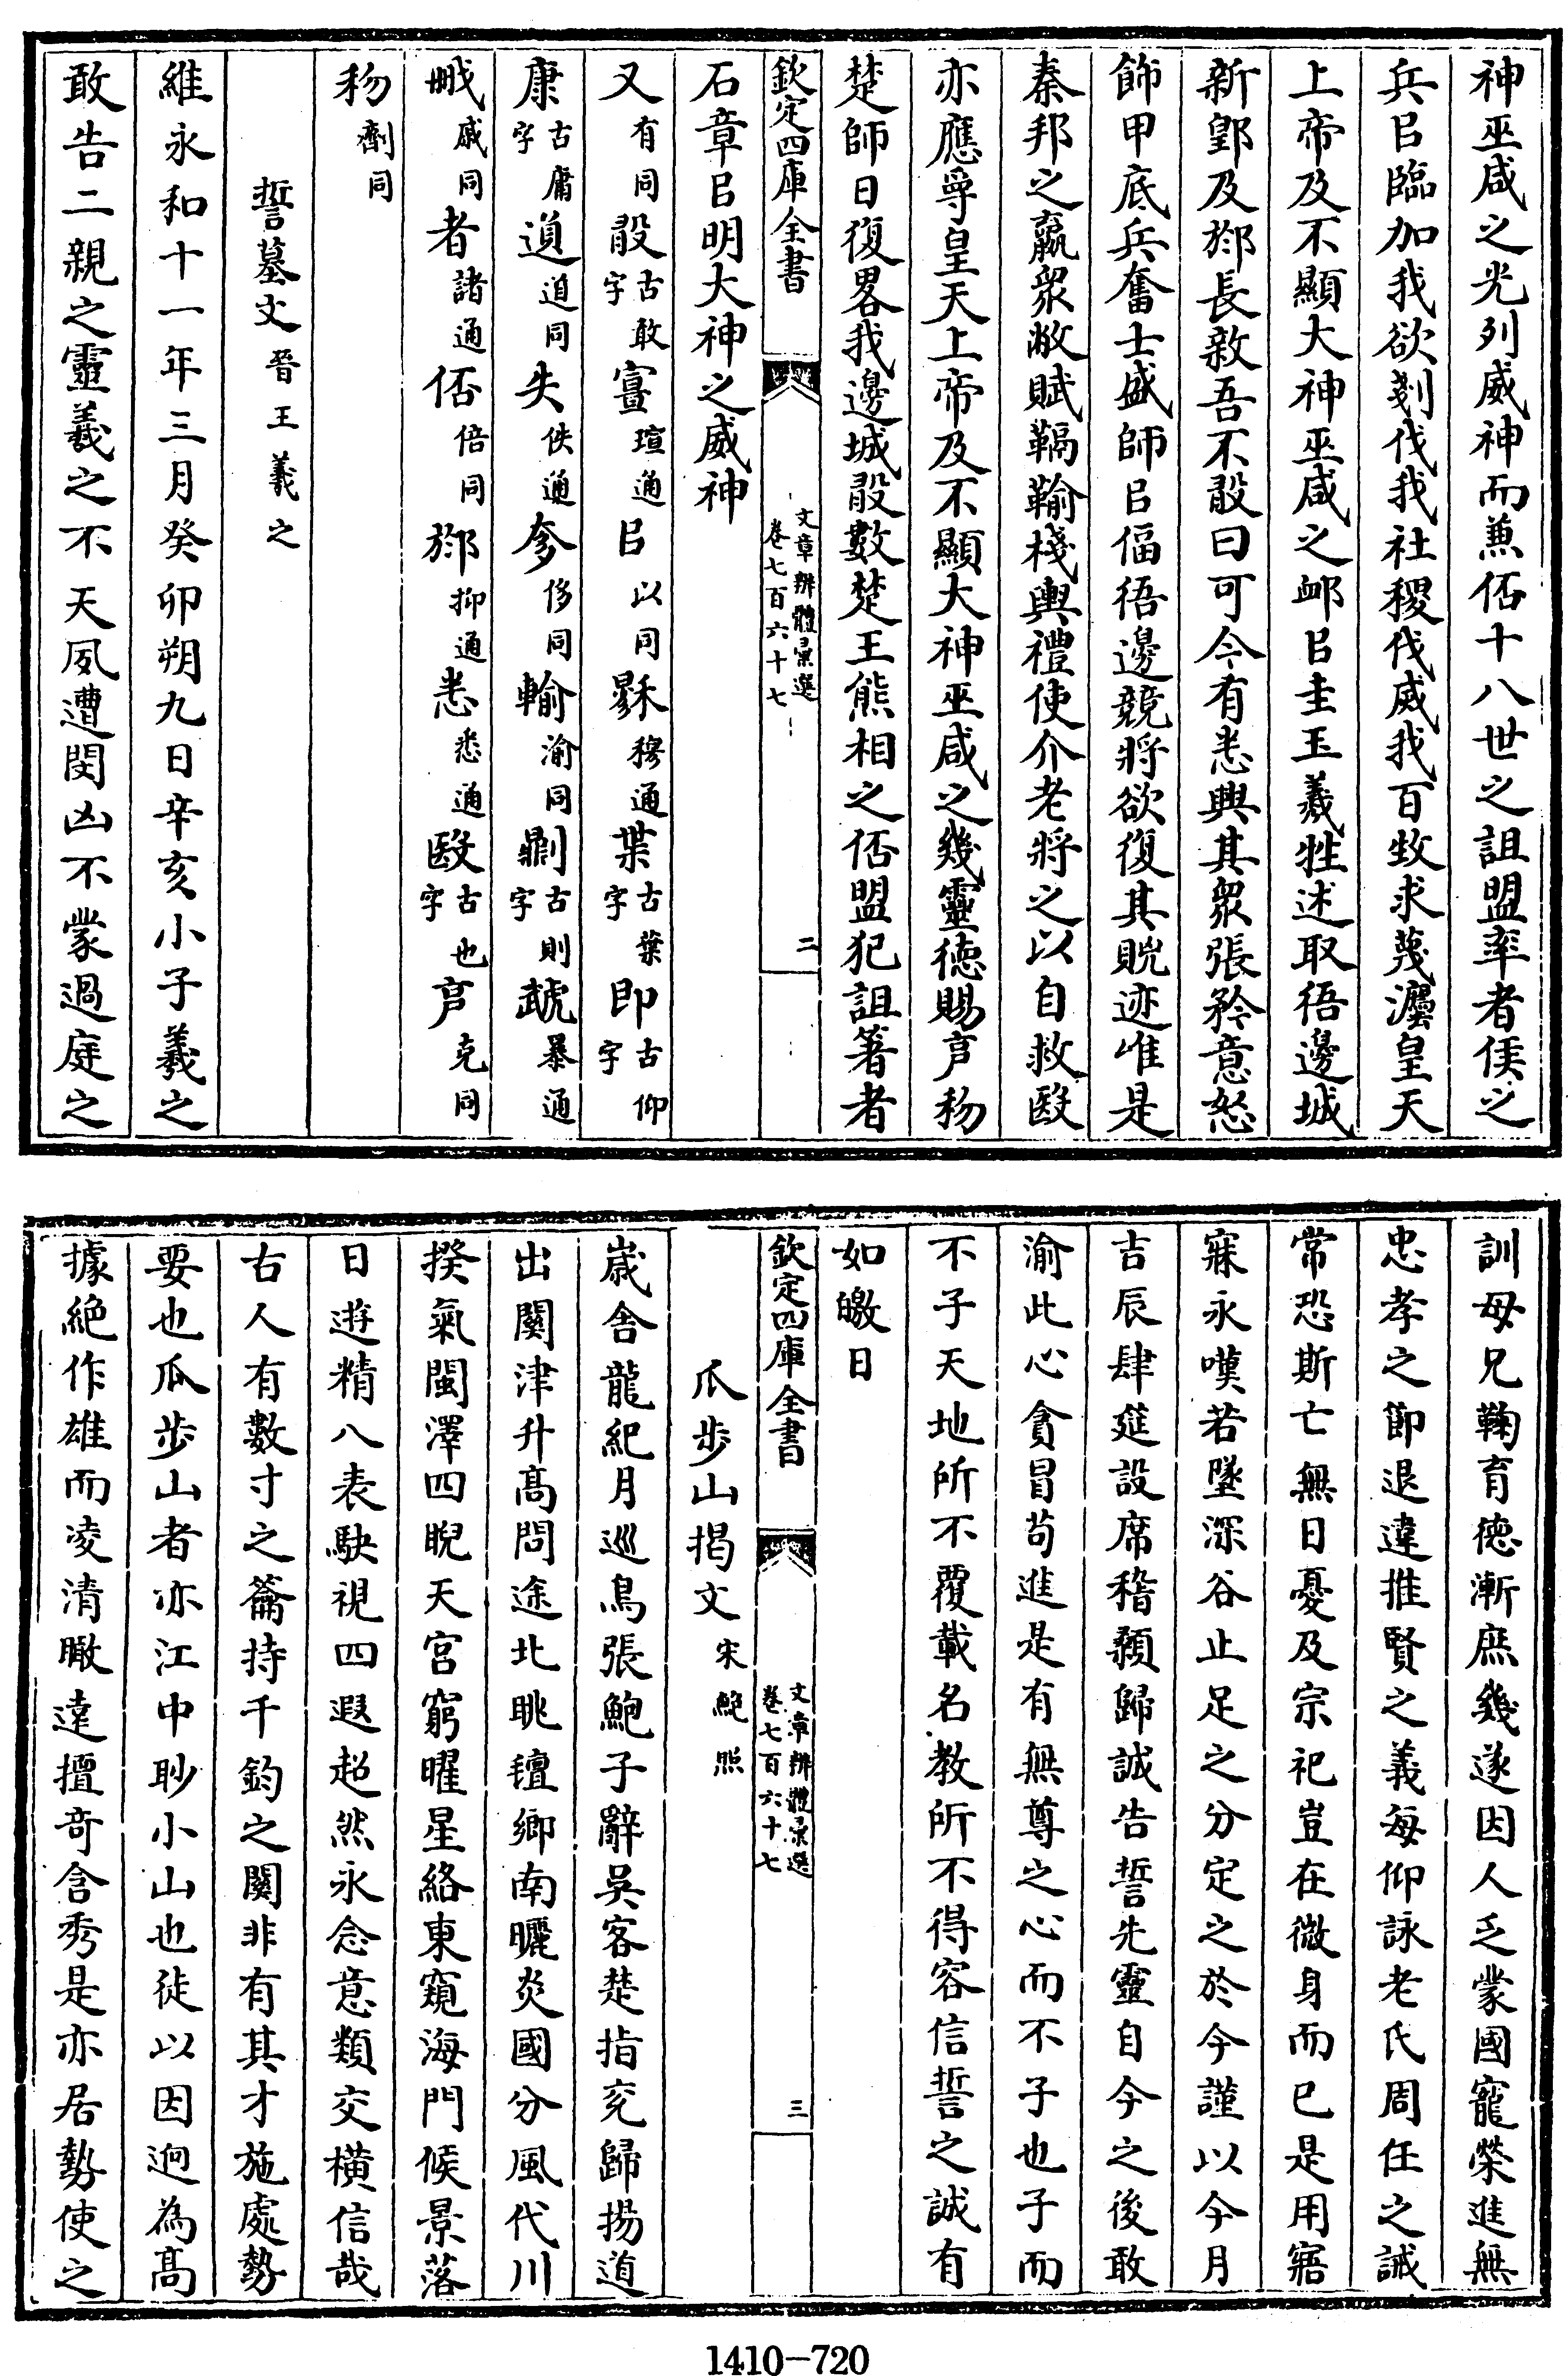 神巫咸之光列威神而兼倍十八世之詛盟率者侯之
兵㠯臨加我欲剗伐我社稷伐威我百牧求蔑灋皇天
上帝及不顯大神巫咸之卹㠯圭玉羲牲述取㣻邊城
新郢及䢴長敹吾不敢曰可今有悉興其衆張矜意怒
飾甲底兵奮士盛師㠯偪㣻邊競將欲復其貺迹唯是
秦邦之羸衆敝賦䩹鞈棧輿禮使介老將之以自救殹
亦應受皇天上帝及不顯大神巫咸之幾靈德賜亯㓨
楚師日復畧我邊城敢數楚王熊相之倍盟犯詛箸者
欽定四庫全書
文章辨體彚選
卷七百六十七
二
石章㠯明大神之威神
又有同敢古敢字寷瑄通㠯以同䅽穆通枼古葉字卽古仰字
康古庸字道道同失佚通奓侈同輸渝同鼎刂古則字虣暴通
戚同者諸通倍倍同䢴抑通悉悉通殹古也字亯克同
㓨劑同
誓墓文晉王羲之
維永和十一年三月癸卯朔九日辛亥小子羲之
敢告二親之靈羲之不天夙遭閔凶不蒙過庭之
訓母兄鞠育德漸庶幾遂因人乏蒙國寵榮進無
忠孝之節退違推賢之義每仰詠老氏周任之誡
常恐斯亡無日憂及宗祀豈在微身而已是用寤
寐永嘆若墜深谷止足之分定之於今謹以今月
吉辰肆筵設席稽顙歸誠告誓先靈自今之後敢
渝此心貪冒茍進是有無尊之心而不子也子而
不子天地所不覆載名教所不得容信誓之誠有
如皦日
欽定四庫全書
文章辨體彚選
卷七百六十七
三
瓜步山揭文宋鮑照
嵗舍龍紀月巡鳥張鮑子辭吳客楚指兖歸揚道
出關津升高問途北眺氊鄉南曬炎國分風代川
揆氣閩澤四睨天宮窮曜星絡東窺海門候景落
日遊精八表駃視四遐超然永念意類交橫信哉
古人有數寸之籥持千鈞之關非有其才施處勢
要也瓜步山者亦江中眇小山也徒以因迥為高
據絶作雄而凌清瞰逺擅奇含秀是亦居勢使之
1410-720